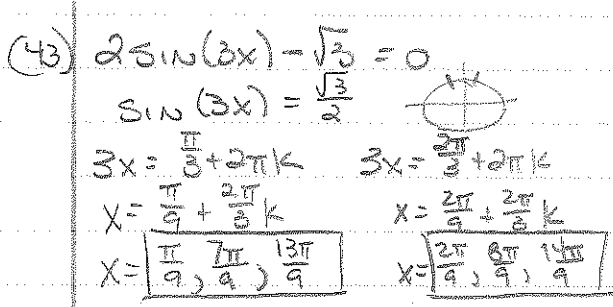 (43) 2 SIN(3x) - √3 = 0
SIN (3x) = √3/2
3x = π/3 + 2πk    3x = 2π/3 + 2πk
x = π/9 + 2π/3 k    x = 2π/9 + 2π/3 k
x = π/9, 7π/9, 13π/9    x = 2π/9, 8π/9, 14π/9